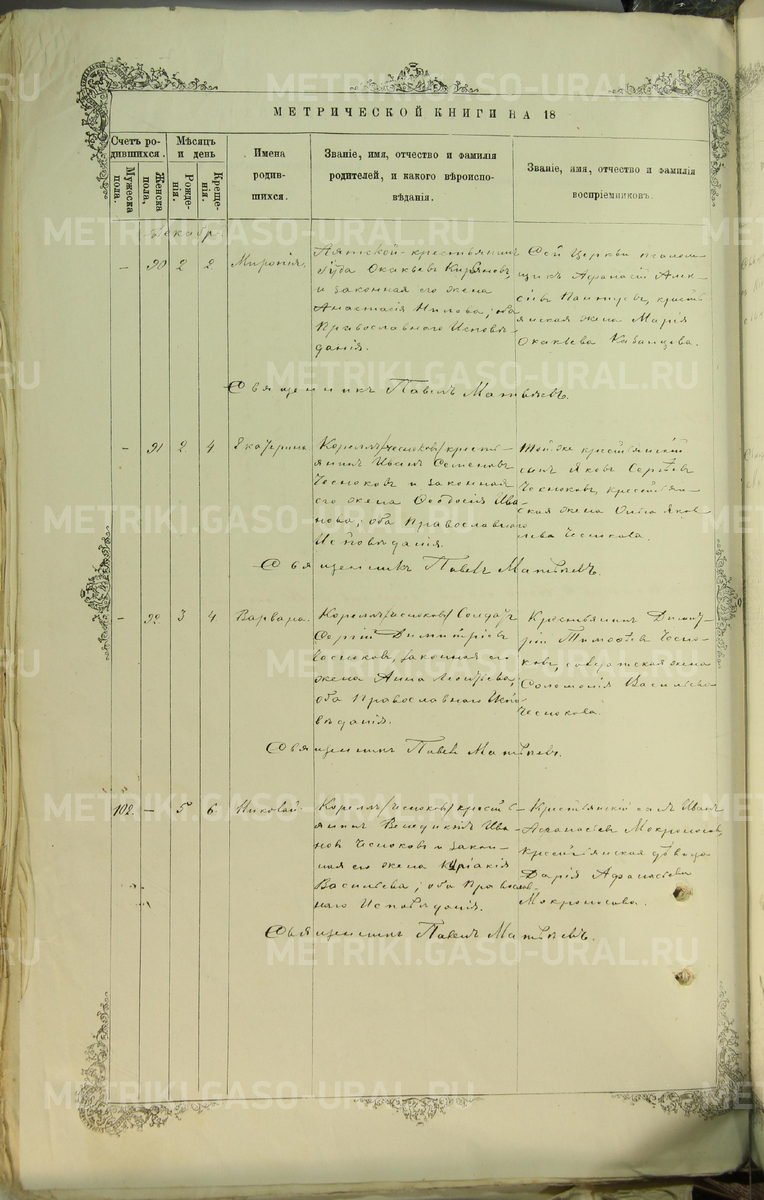 МЕТРИЧЕСКОЙ КНИГИ НА 18
Счетъ ро-
дившихся.
Мужеска пола.
Женска пола.
Мѣсяцъ и день
Рожде-
нія.
Креще-
нія.
Имена
родив-
шихся.
Званіе, имя, отчество и фамилія
родителей, и какого вѣроиспо-
вѣданія.
Званіе, имя, отчество и фамилія
воспріемниковъ.
Декабрь
– 90 2 2
законная его жена
Анастасія Нилова; оба
Православнаго Исповѣ-
данія.
Сей Церкви псалом-
щикъ Афанасій Алек-
сѣевъ крестъ-
янская жена Марія
Акакіева Казанцева.
Священникъ Павелъ Матвѣевъ.
– 91 2 4 Екатерина
янинъ Иванъ Семеновъ
Чесноковъ и законная
его жена Ѳеодосія Ива
нова; оба Православнаго
Исповѣданія.
Той же крестьянскій
сынъ Яковъ Сергѣевъ
Чесноковъ, крестьян-
ская жена Ольга Яков
лева Чеснокова.
Священникъ Павелъ Матвѣевъ.
– 92. 3 4. Варвара.
Сергій Димитріевъ
Чесноковъ, законная его
жена Анна
оба Православнаго Испо
вѣданія.
Крестьянинъ Димит-
рій Тимофѣевъ Чесно-
ковъ, солдатская жена
Соломонія Васильева
Чеснокова.
Священникъ Павелъ Матвѣевъ.
102. – 5 6 Николай.
янинъ Венедиктъ Ива
новъ Чесноковъ и закон-
ная его жена Киріакія
Васильева; оба Православ-
наго Исповѣданія.
Крестьянскій сынъ Иванъ
Афанасьевъ Мокроносовъ,
крестьянская дѣвица
Дарія Афанасьева
Мокроносова.
Священникъ Павелъ Матвѣевъ.
METRIKI.GASO-URAL.RU